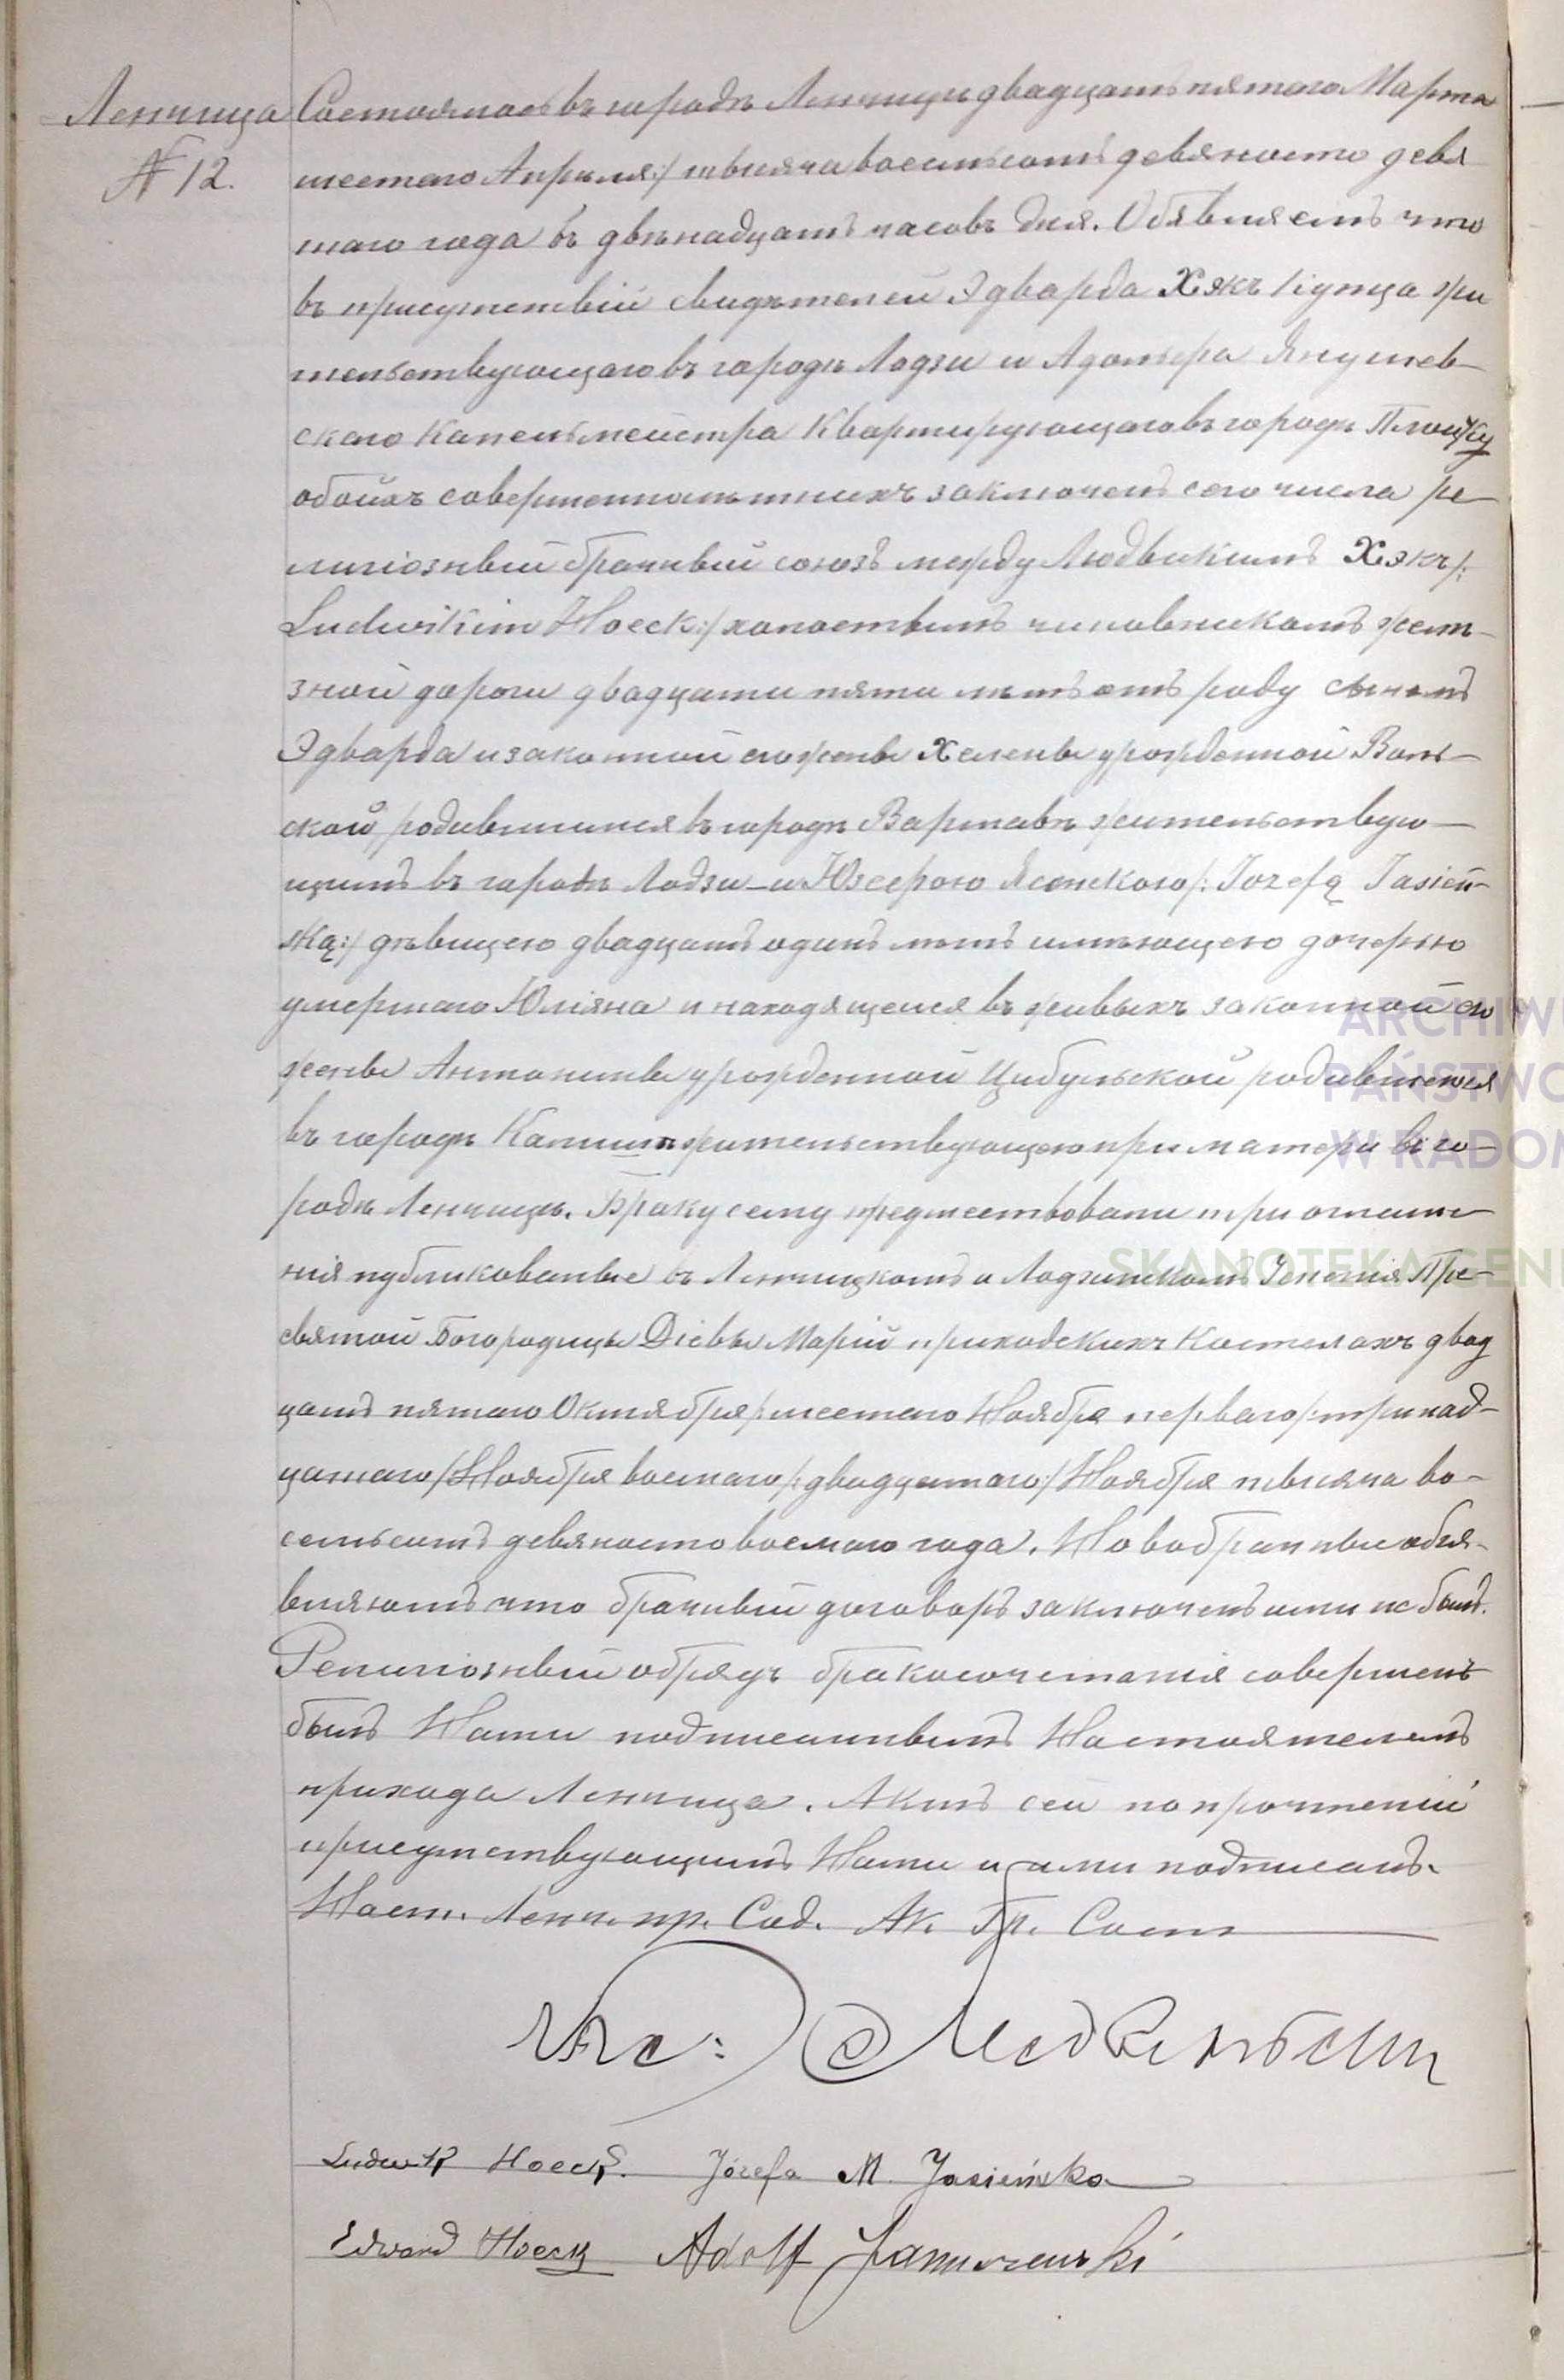 Ленчица
№ 12.
Состоялось въ городѣ Ленчицѣ двадцать пятаго Марта
шестаго Апрѣля:/ тысяча восемьсотъ девяносто девя
таго года въ двѣнадцать часовъ дня. Объявляемъ что
въ присутствіи свидѣтелей Эдварда Хэкъ купца жи
тельствующаго въ городѣ Лодзи и Адольфа Янушев-
скаго Капельмейстра Квартирующаго въ городѣ Плоцку
обоихъ совершеннолѣтнихъ заключенъ сего числа ре-
лигіозный брачный союзъ между Людвикимъ Хэкъ /:
Ludwikim Hoeck:/ холостымъ чиновникомъ желѣ-
зной дороги двадцати пяти лѣтъ отъ роду сыномъ
Эдварда и законной его жены Хелены урожденной Воль-
ской родившимся въ городѣ Варшавѣ жительствую-
щимъ въ городѣ Лодзи – и Юзефою Ясенскою /: Jozefą Jasień-
ską:/ дѣвицею двадцать одинъ лѣтъ имѣющею дочерью
умершаго Юліяна и находящейся въ живыхъ законной его
жены Антонины урожденной Цибульской родившеюся
въ городѣ Калишѣ жительствующею при матери въ го-
родѣ Ленчицѣ. Браку сему предшествовали три оглаше-
нія публикованные въ Ленчицкомъ и Лодзинскомъ Успенія Пре-
святой Богородицы Дѣвы Маріи приходскихъ Костелахъ двад
цать пятаго Октября /шестаго Ноября перваго /:тринад-
цатаго/ Ноября восьмаго /:двадцатаго:/ Ноября тысяча во-
семьсотъ девяносто восьмаго года. Новобрачные объя-
вляютъ что брачный договоръ заключенъ ими не былъ.
Религіозный обрядъ бракосочетанія совершенъ
былъ Нами подписаннымъ Настоятелемъ
прихода Ленчица. Актъ сей по прочтеніи
присутствующимъ Нами и ими подписанъ.
Наст. Ленч. пр. Сод. Ак. Гр. Сост
Ludwik Hoeck. Józefa M. Jasieńska
Edward Hoeck Adolf Januszewski
ARCHIW
PAŃSTWO
W RADOM
SKANOTEKA GEN